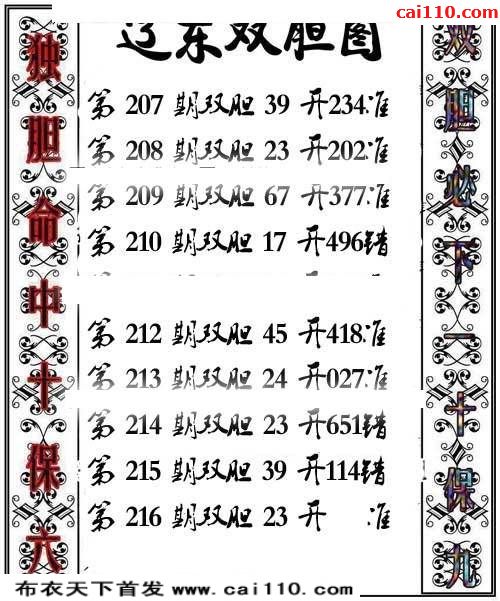 cai110.com
辽东双胆图
独胆命中十保六
双胆必下一十保九
第 207 期双胆 39 开234准
第 208 期双胆 23 开202准
第 209 期双胆 67 开377准
第 210 期双胆 17 开496错
第 212 期双胆 45 开418准
第 213 期双胆 24 开027准
第 214 期双胆 23 开651错
第 215 期双胆 39 开114错
第 216 期双胆 23 开 准
布衣天下首发 www.cai110.com